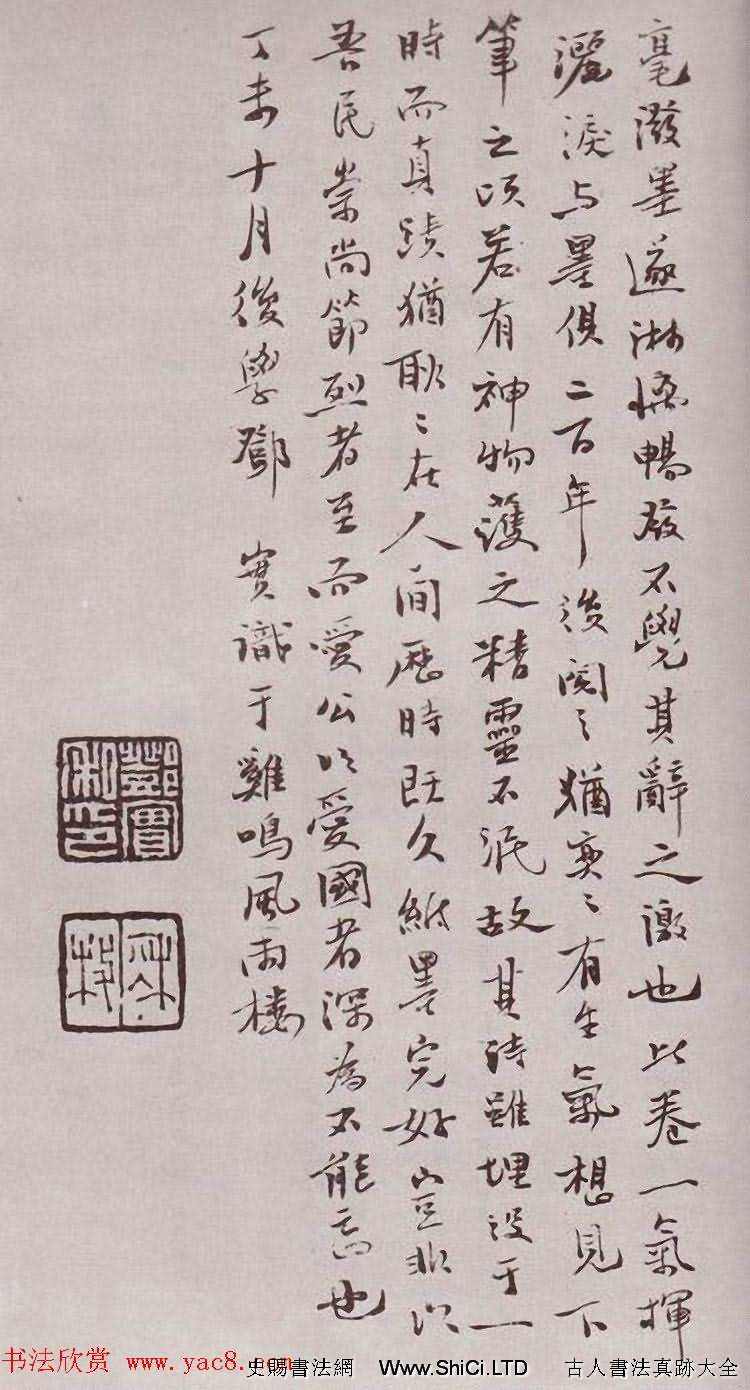 毫潑墨遂淋慷暢發不覺其辭之激也此卷一氣揮
灑淚与墨俱二百年後閱之猶奕〻有生氣想見下
筆之頃若有神物護之精靈不泯故其詩雖埋没于一
時而真蹟猶耿〻在人間歷時既久紙墨完好豈非以
吾民崇尚節烈者至而愛公以愛國者深為不能忘也
丁未十月後學鄧 實識于雞鳴風雨樓
鄧實
秋枚
书法欣赏 www.yac8.com
史賜書法網 Www.ShiCi.LTD 古人書法真跡大全